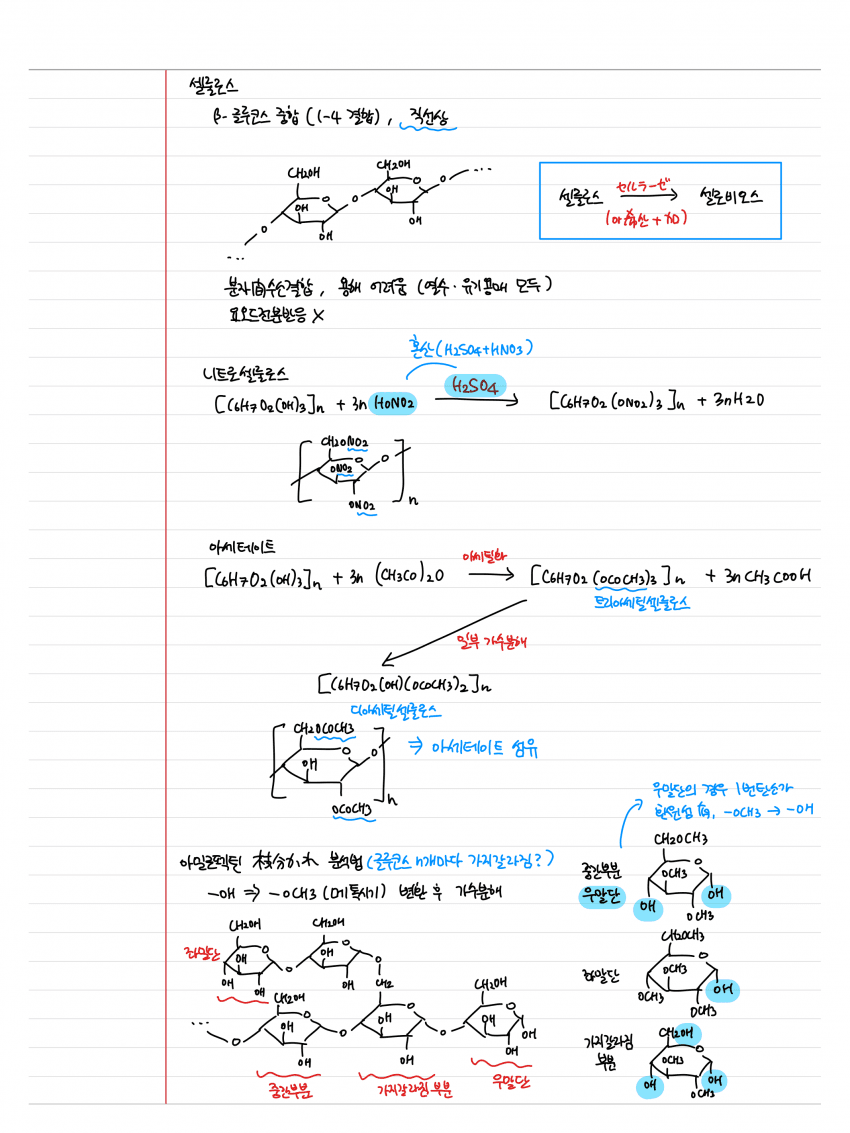 셀룰로스
β-글루코스 중합 (1-4 결합), 직선상
CH2OH
OH
O
O
OH
CH2OH
OH
O
O
OH
...
...
셀룰로스 セルラーゼ → 셀로비오스
분자間수소결합, 용해 어려움 (열수·유기용매 모두)
요오드전분반응 X
혼산(H2SO4+HNO3)
니트로셀룰로스
[C6H7O2(OH)3]n + 3n HONO2 H2SO4 → [C6H7O2(ONO2)3]n + 3nH2O
CH2ONO2
O
O
ONO2
ONO2
n
아세테이트
[C6H7O2(OH)3]n + 3n (CH3CO)2O 아세틸화 → [C6H7O2(OCOCH3)3]n + 3nCH3COOH
트리아세틸셀룰로스
일부 가수분해
[C6H7O2(OH)(OCOCH3)2]n
디아세틸셀룰로스
CH2OCOCH3
O
O
OH
OCOCH3
n
⇒ 아세테이트 섬유
우말단의 경우 1번탄소가
환원성 有, -OCH3 → -OH
아밀로펙틴 枝分かれ 분석법 (글루코스 n개마다 가지갈라짐?)
-OH ⇒ -OCH3 (메톡시기) 변환 후 가수분해
중간부분
우말단
CH2OCH3
O
OCH3
OH
OH
OCH3
좌말단
CH2OCH3
O
OCH3
OCH3
OH
OCH3
가지갈라짐
부분
CH2OH
O
OCH3
OH
OH
OCH3
좌말단
CH2OH
O
OH
OH
OH
O
CH2OH
O
OH
OH
O
CH2
...
O
CH2OH
O
OH
OH
O
O
OH
OH
O
CH2OH
O
OH
OH
OH
중간부분
가지갈라짐 부분
우말단